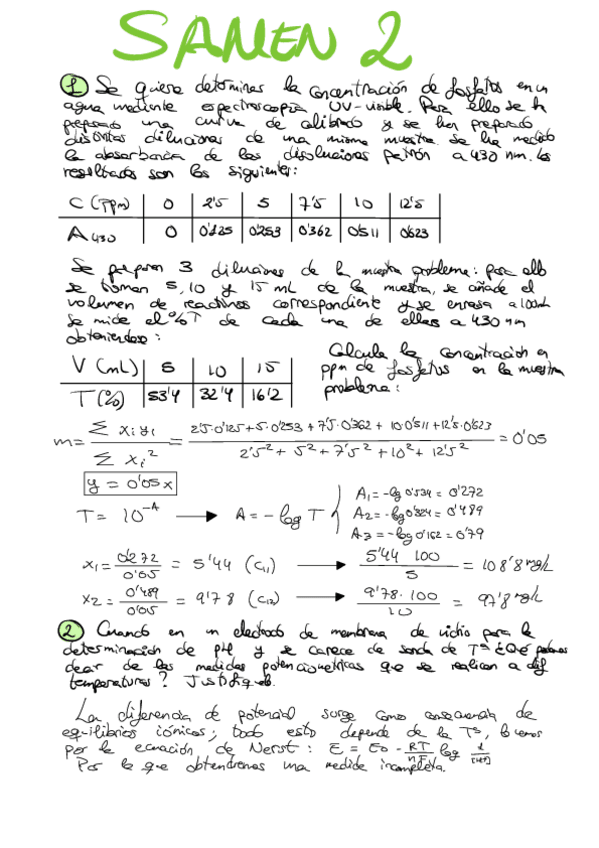 SAMEN 2
① Se quiere determinar la concentración de fosfatos en un
agua mediante espectroscopia UV-visible. Para ello se h
preparado una curva de calibrado y se han preparado
distintas diluciones de una misma muestra. Se ha medido
la absorbancia de las disoluciones patrón a 430 nm. Los
resultados son los siguientes:
C (ppm) 0 2'5 5 7'5 10 12'5
A430 0 0'125 0'253 0'362 0'511 0'623
Se preparan 3 diluciones de la muestra problema: para ello
se toman 5, 10 y 15 mL de la muestra, se añade el
volumen de reactivos correspondiente y se enrasa a 100mL
Se mide el %T de cada una de ellas a 430 nm
obteniendose:
V (mL) 5 10 15
T (%) 53'4 32'4 16'2
Calcula la concentración en
ppm de fosfatos en la muestra
problema:
m = Σ xi yi / Σ xi² = 2'5·0'125+5·0'253+7'5·0'362+10·0'511+12'5·0'623 / 2'5²+5²+7'5²+10²+12'5² = 0'05
y = 0'05x
T = 10^-A → A = -log T
A1 = -log 0'534 = 0'272
A2 = -log 0'324 = 0'489
A3 = -log 0'162 = 0'79
x1 = 0'272 / 0'05 = 5'44 (C11) → 5'44 · 100 / 5 = 108'8 mg/L
x2 = 0'489 / 0'05 = 9'78 (C12) → 9'78 · 100 / 10 = 97'8 mg/L
② Cuando en un electrodo de membrana de vidrio para la
determinación de pH y se carece de sonda de Tª ¿Qué podemos
decir de las medidas potenciometricas que se realicen a dif
temperaturas? Justifíquelo.
La diferencia de potencial surge como consecuencia de
equilibrios iónicos; todo esto depende de la Tª, lo vemos
por la ecuación de Nerst: E = E0 - RT/nF log 1/[H+]
Por lo que obtendremos una medida incompleta.